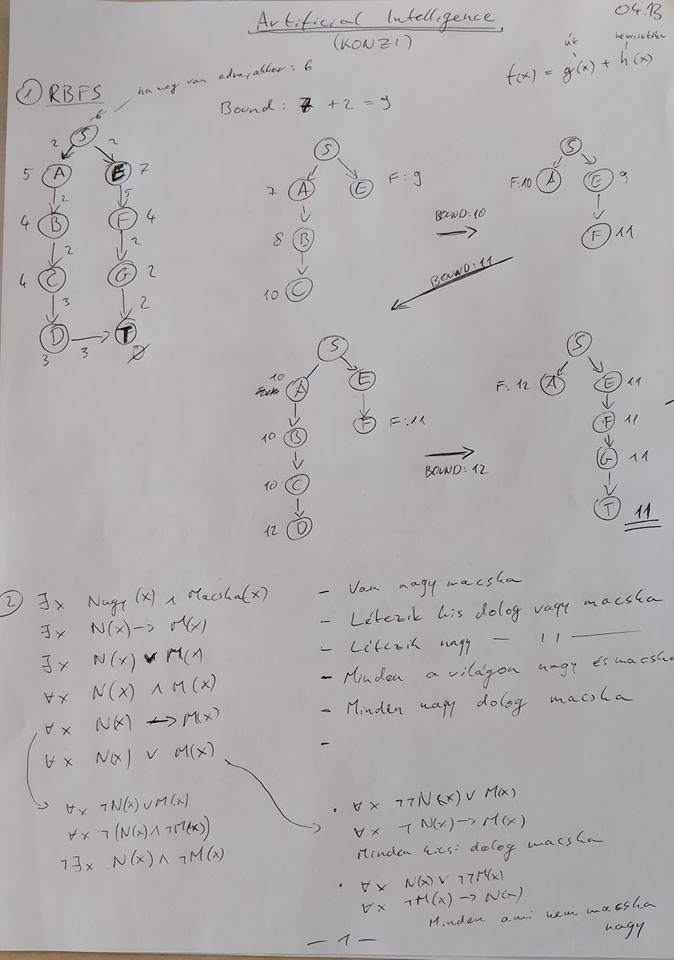 Artificial Intelligence
(KONZI)
04.13
① RBFS
ha meg van adva, akkor: 6
Bound: 7 + 2 = 9
út heurisztika
f(x) = g(x) + h(x)
6
S
2 2
5 A E 7
2 5
4 B F 4
2 2
4 C G 2
3 2
D 3 T
3 0
S
7 A E F: 9
8 B
10 C
BOUND: 10
S
F: 10 A E 9
F 11
BOUND: 11
S
10 A E
10 B F F: 11
10 C
12 D
BOUND: 12
S
F: 12 A E 11
F 11
G 11
T 11
② ∃x Nagy(x) ∧ Macska(x) - Van nagy macska
∃x N(x) → M(x) - Létezik kis dolog vagy macska
∃x N(x) ∨ M(x) - Létezik nagy — 11 —
∀x N(x) ∧ M(x) - Minden a világon nagy és macska
∀x N(x) → M(x) - Minden nagy dolog macska
∀x N(x) ∨ M(x) -
∀x ¬N(x) ∨ M(x)
∀x ¬(N(x) ∧ ¬M(x))
¬∃x N(x) ∧ ¬M(x)
• ∀x ¬¬N(x) ∨ M(x)
∀x ¬N(x) → M(x)
Minden kicsi dolog macska
• ∀x N(x) ∨ ¬¬M(x)
∀x ¬M(x) → N(x)
Minden ami nem macska
nagy
— 1 —